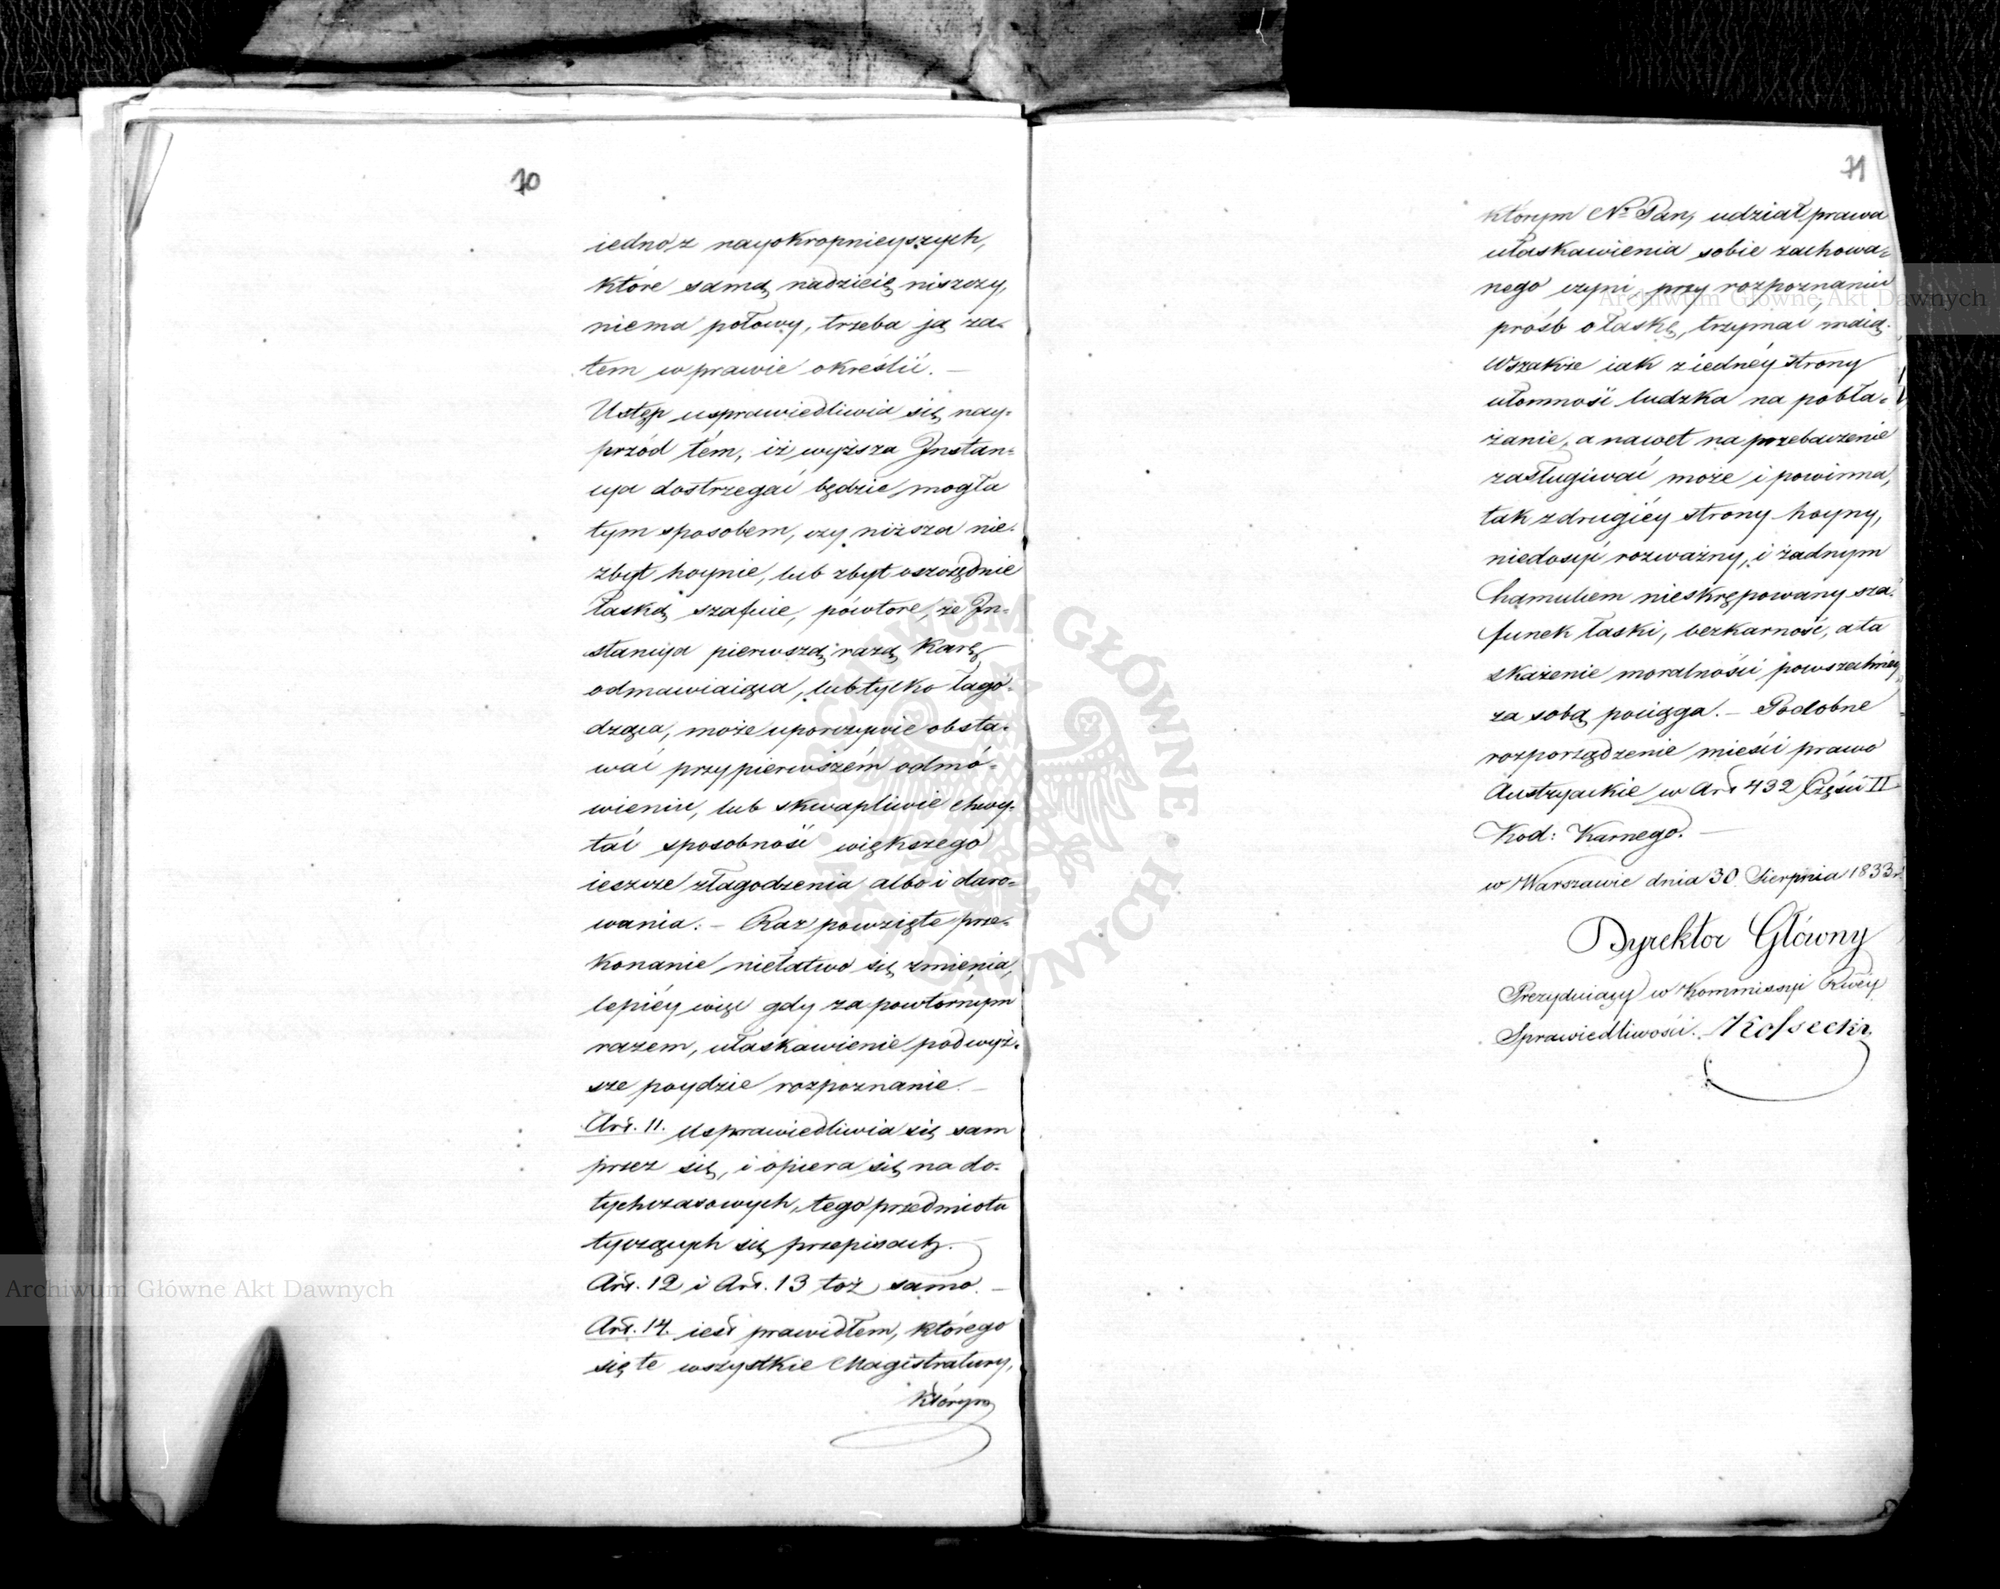 70
iedno z nayokropnieyszych,
które samą nadzieię niszczy,
niema połowy, trzeba ją za-
tem w prawie określić. —
Ustęp usprawiedliwia się nay-
przód tém, iż wyższa Instan-
cya dostrzegać będzie mogła
tym sposobem, czy niższa nie-
zbyt hoynie, lub zbyt oszczędnie
łaską szafuie, powtóre, że In-
stancya pierwszą razą karę
odmawiaiąca, lub tylko łago-
dząca, może uporczywie obsta-
wać przy pierwszém odmó-
wieniu, lub skwapliwie chwy-
tać sposobność większego
ieszcze złagodzenia albo i daro-
wania. — Raz powzięte prze-
konanie niełatwo się zmienia,
lepiéy więc gdy za powtórnym
razem, ułaskawienie pod wyż-
sze poydzie rozpoznanie. —
Art. 11. Usprawiedliwia się sam
przez się, i opiera się na do-
tychczasowych, tego przedmiotu
tyczących się przepisach. —
Art. 12 i Art. 13 toż samo. —
Art. 14. iest prawidłem, którego
się te wszystkie Magistratury,
którym
71
którym Nr Pan, udział prawa
ułaskawienia sobie zachowa-
nego czyni, przy rozpoznaniu
próśb o łaskę, trzymać maią.
Wszakże iak z iednéy strony
ułomność ludzka na pobła-
żanie, a nawet na przebaczenie
zasługiwać może i powinna,
tak z drugiéy strony hoyny,
niedosyć rozważny, i żadnym
hamulcem nieskrępowany sza-
funek łaski, bezkarność, a ta
skażenie moralności powszechnéy
za sobą pociąga. — Podobne
rozporządzenie mieści prawo
Austryackie w Art 432 Części II
Kod: Karnego. —
w Warszawie dnia 30 Sierpnia 1833 r.
Dyrektor Główny
Prezyduiący w Kommissyi Rwéy
Sprawiedliwości. Kossecki
Archiwum Główne Akt Dawnych
Archiwum Główne Akt Dawnych
ARCHIWUM GŁÓWNE AKT DAWNYCH